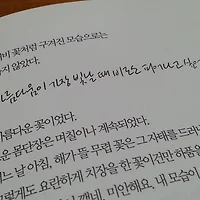 비 꽃처럼 구겨진 모습으로는
지 않았다.
름다움이 가장 빛날 때 비로소
아름다운 꽃이었다.
운 몸단장은 며칠이나 계속되었다.
느 날 아침, 해가 뜰 무렵 꽃은 그 자태를 드러
그렇게도 요란하게 치장을 한 꽃이건만 하품을
깼네. 미안해요. 내 모습이